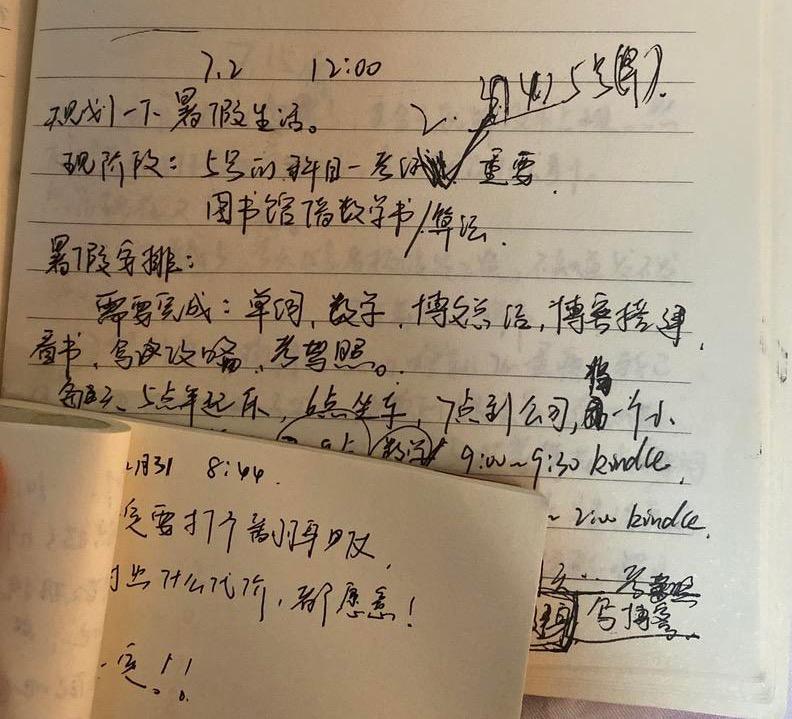 7.2 12:00
规划一下暑假生活。
2. 4) 5号(早).
现阶段: 5号的科目一考试 重要.
图书馆借数学书/算法.
暑假安排:
需要完成: 单词, 数学, 博文总结, 博客搭建,
看书, 写攻略, 考驾照。
5点半起床, 6点坐车, 7点到公司, 一个小
数学 9:00~9:30 kindle,
月31 8:44.
~ 2:00 kindle.
定要打个翻身
什么代价, 都愿意!
考驾照
写博客.
一定!!